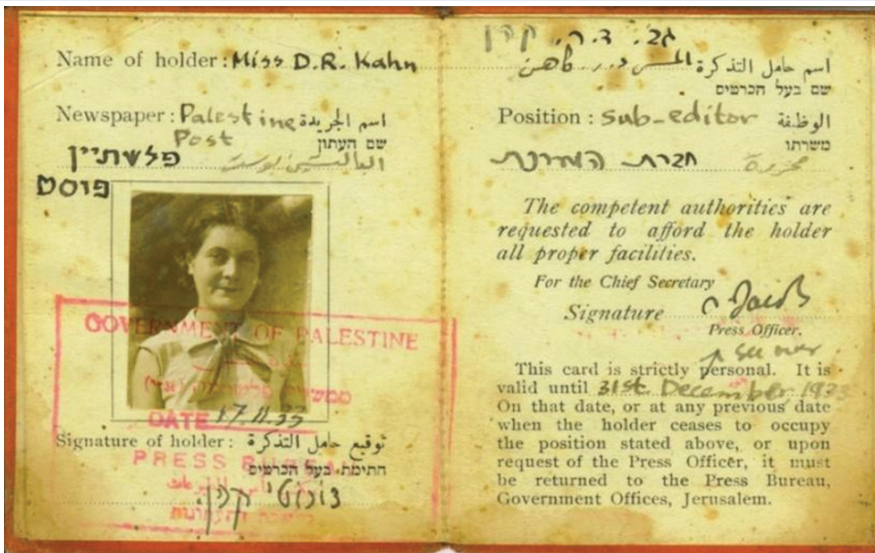 Name of holder: Miss D.R. Kahn
اسم حامل التذكرة
שם בעל הכרטיס
Newspaper: Palestine
Post
اسم الجريدة
שם העתון
פלשתיין
פוסט
GOVERNMENT OF PALESTINE
DATE 17.11.33
Signature of holder: توقيع حامل التذكرة
PRESS BUREAU
חתימת בעל הכרטיס
גב. ד.ר. קהן
Position: sub-editor الوظيفة
משרתו
חברת המערכת محررة
The competent authorities are
requested to afford the holder
all proper facilities.
For the Chief Secretary
Signature
Press Officer.
This card is strictly personal. It is
valid until 31st December, 1933
On that date, or at any previous date
when the holder ceases to occupy
the position stated above, or upon
request of the Press Officer, it must
be returned to the Press Bureau,
Government Offices, Jerusalem.